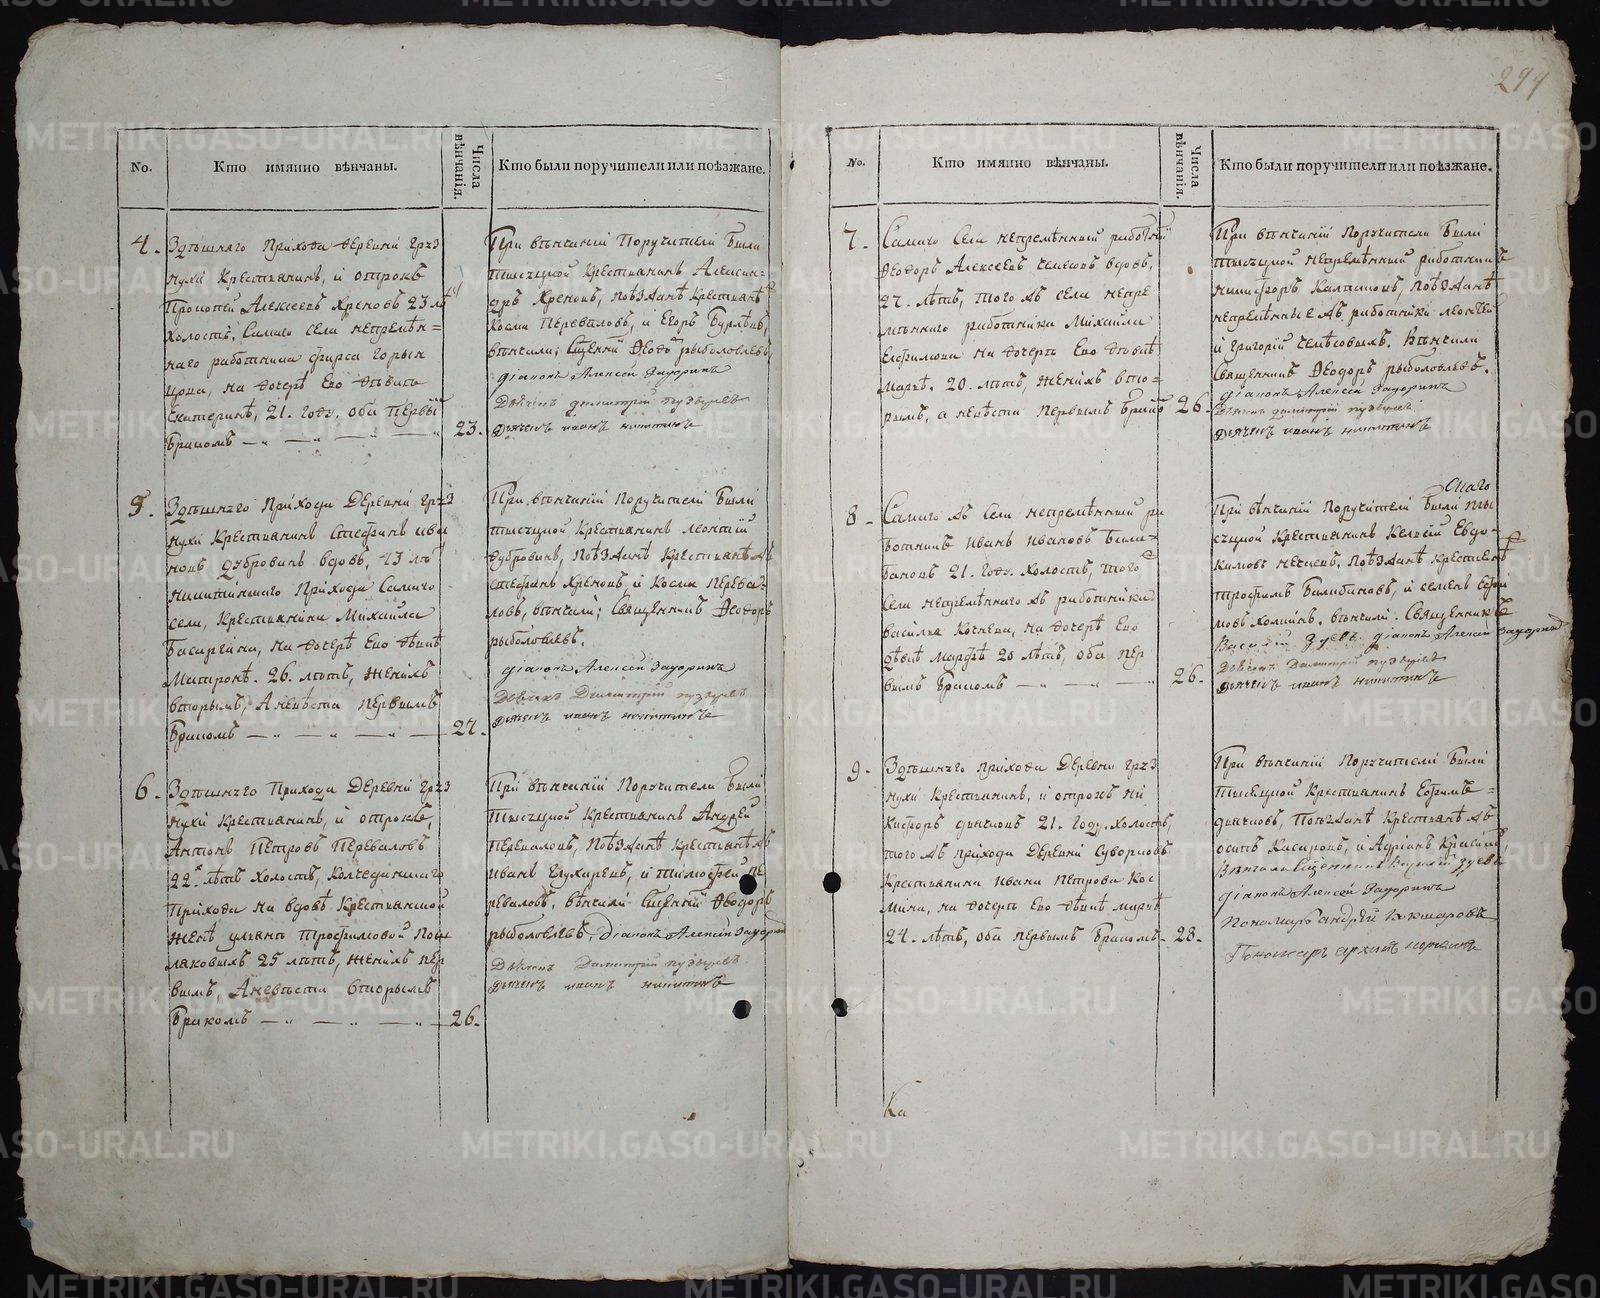 299
No.
Кто имянно вѣнчаны.
Числа вѣнчанія.
Кто были поручители или поѣзжане.
4.
Здѣшняго Прихода деревни Грѧз
нухи Крестьянинъ, и отрокъ
Прокопей Алексеевъ Хреновъ 23 лѣ
холостъ. Самаго села непремѣн=
наго работника Фирса Горын
цова, на дочерѣ Ево дѣвице
Екатеринѣ, 21. году. оба Первы
Бракомъ
23.
При вѣнчаніи Поручители Были
тысяцкой Крестьянинъ Алексан=
дръ Хреновъ, поѣзжанѣ Крестьянѣ
Косма Переваловъ, и Егоръ Бурлѣвъ,
вѣнчали; Сщенни Ѳеодо рыболовлевъ,
діаконъ Алексей Задоринъ
Дьячекъ димитрій пузыревъ
Дьячекъ иванъ никитинъ
5.
Здѣшняго Прихода Деревни Грѧз
нухи Крестьянинъ Стефанъ ива
новъ дубровинъ вдовъ, 43 лѣ
Прихода Самаго
села, Крестьянина Михайла
Басаргина, на дочерѣ Ево дѣвице
Матронѣ. 26. лѣтъ, женихъ
вторымъ, А невѣста первымъ
Бракомъ
27.
При вѣнчаніи Поручители Были
тысяцкой Крестьянинъ леонтий
дубровинъ, поѣзжанѣ Крестьянѣ
стефанъ Хреновъ, и Косма Перева
ловъ, вѣнчали; Священникъ Ѳеодоръ
рыболовлевъ.
діаконъ Алексей Задоринъ
Дьячекъ Димитрій пузыревъ
Дьячекъ иванъ никитинъ
6.
Здѣшняго Прихода Деревни Грѧз
нухи Крестьянинъ, и отрокъ,
Антонъ Петровъ Переваловъ
22. лѣтъ холостъ, Колчеданскаго
Прихода на вдовѣ Крестьянской
женѣ улиане Трофимовой
25 лѣтъ, женихъ пер
вымъ, А невѣста вторымъ
Бракомъ
26.
При вѣнчаніи Поручители Были
тысяцкой Крестьянинъ Андрей
Переваловъ, Поѣзжанѣ Крестьянѣ
иванъ Глухаревъ, и тимофей Пе
реваловъ. вѣнчали Сщенни Ѳеодоръ
рыболовлевъ, діаконъ Алексей Задорин
Дьячекъ Димитрій пузыревъ
Дьячекъ иванъ никитинъ
No.
Кто имянно вѣнчаны.
Числа вѣнчанія.
Кто были поручители или поѣзжане.
7.
Самаго Села непремѣнный работни
Ѳеодоръ Алексеевъ вдовъ,
27. лѣтъ, того жъ села непре
мѣннаго работника Михайла
Евфилова на дочерѣ Ево дѣвице
Марьѣ. 20. лѣтъ, женихъ вто=
рымъ, а невѣста первымъ Брако
26.
При вѣнчаніи Поручители Были
тысяцкой непремѣнный работникъ
никифоръ поѣзжанѣ
непремѣнные жъ работники леонтей
и григорій вѣнчали
Священникъ Ѳеодоръ рыболовлевъ.
діаконъ Алексей Задоринъ
Дьячекъ димитрій пузыревъ
Дьячекъ иванъ никитинъ
8.
Самаго жъ Села непремѣнный ра
ботникъ Иванъ Ивановъ Бали=
бановъ 21. году. холостъ, того
Села непремѣннаго жъ работника
василья Кочнева, на дочерѣ Ево
дѣвице Марфѣ 20 лѣтъ, оба пер
вымъ Бракомъ
26.
онаго
При вѣнчаніи Поручители Были ты
сяцкой Крестьянинъ Евдо
кимовъ поѣзжанѣ Крестьянѣ
трофимъ Балибановъ, и семенъ
вѣнчали. Священникъ
Василій Зуевъ діаконъ Алексей Задорин
Дьячекъ Димитрій пузыревъ
Дьячекъ иванъ никитинъ
9.
Здѣшняго Прихода Деревни Грѧз
нухи Крестьянинъ, и отрокъ ни
кифоръ дьячковъ 21. году. холостъ,
того жъ прихода Деревни Суворковъ
Крестьянина Ивана Петрова Кос
мина, на дочерѣ Ево дѣвице марьѣ
24. лѣтъ, оба первымъ Бракомъ
28.
При вѣнчаніи Поручители Были
тысяцкой Крестьянинъ Ефимъ
дьячковъ, Поѣзжанѣ Крестьянѣ жъ
осипъ и Адріанъ
Вѣнчали Священникъ Василій Зуевъ
діаконъ Алексей Задоринъ
Пономарь андрей кокшаровъ
Пономарь архипъ
Ка
METRIKI.GASO-URAL.RU